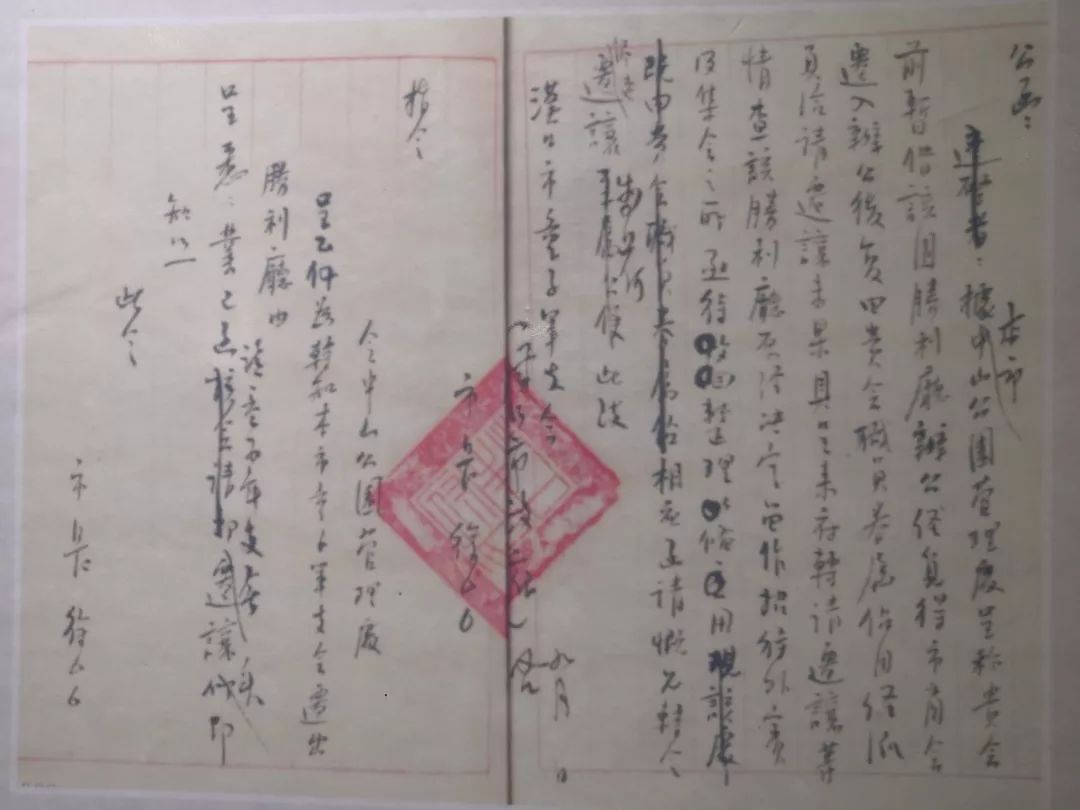 公函
本市
逕啓者：據中山公園管理處呈稱貴會
前暫借該園勝利廳辦公後覓得市商會
遷入辦公後復由貴會職員眷屬佔用經派
員洽請遷讓未果具呈來府轉請遷讓等
情查該勝利廳原經決定留作招待外賓
及集會之所亟待收回整理以備應用現該處
既由貴會職員眷屬佔相應函請惕允轉令
遷讓至為公便此致
漢口市童子軍支會
市長 徐
九月 日
指令
令中山公園管理處
呈乙件為轉知本市童子軍支會遷出
勝利廳由
呈悉業已函該童子軍支會迅遷讓仰即
知照
此令
市長 徐